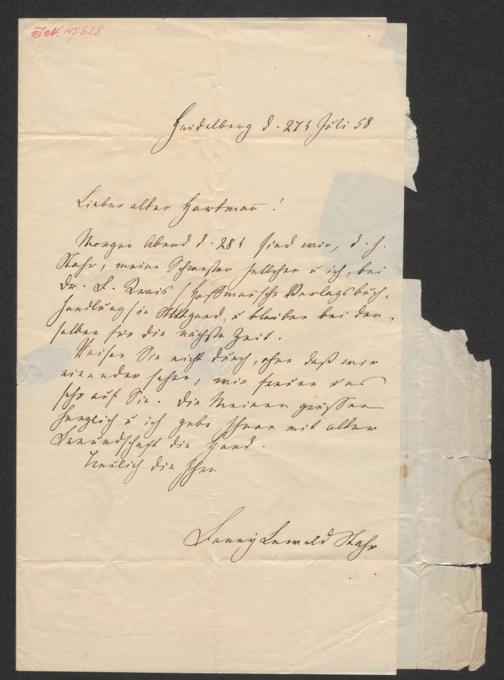 J.N. 47628
Heidelberg d. 27t Juli 58
Lieber alter Hartmann!
Morgen Abend d. 28t sind wir, d. h.
Stahr, meine Schwester u ich, bei
Dr. (Hoffmann'sche Verlagsbuch-
handlung) in Stuttgard, u bleiben bei den-
selben für die nächste Zeit.
Reisen Sie nicht durch, ohne daß wir
einander sehen, wir freuen uns
sehr auf Sie. Die Meinen grüßen
herzlich u ich gebe Ihnen mit alter
Freundschaft die Hand.
Treulich die Ihre
Fanny Lewald Stahr